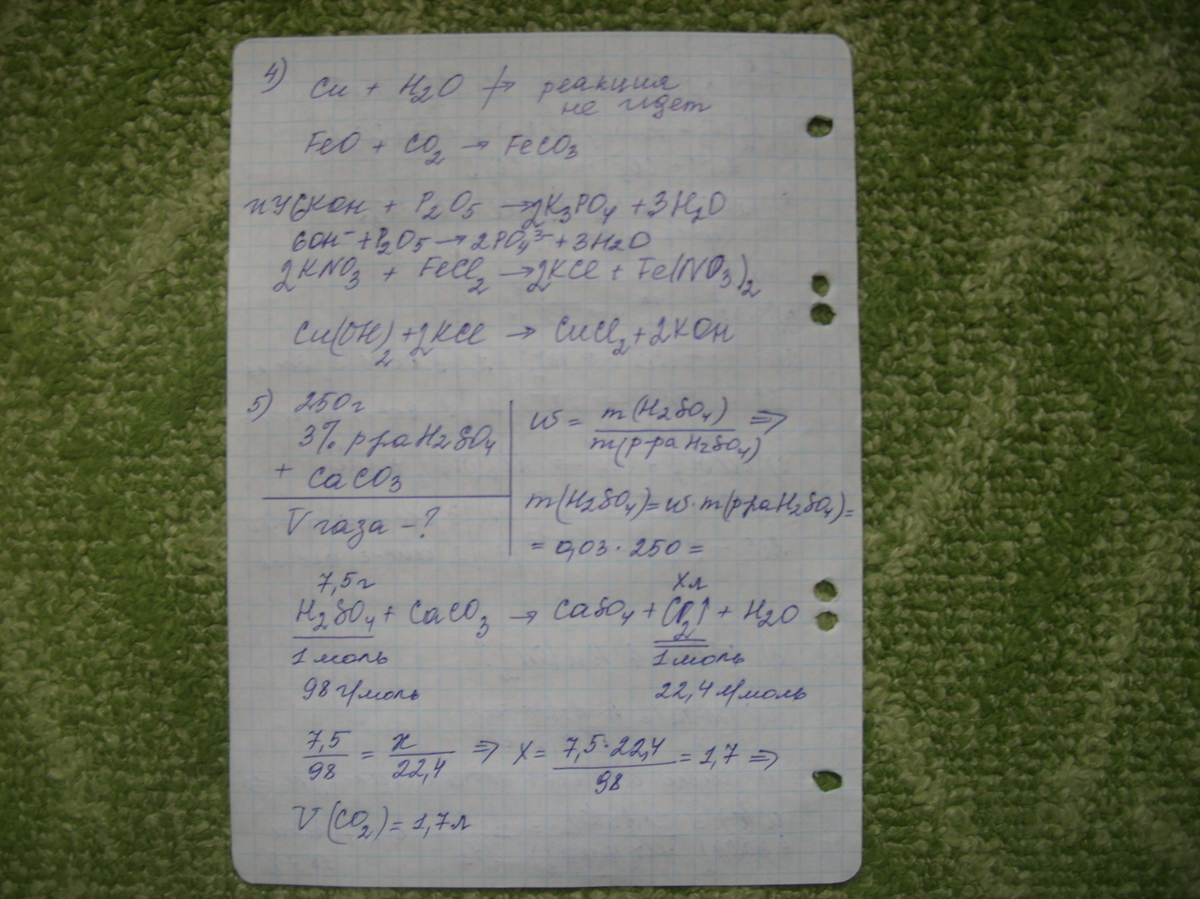 4) Cu + H2O ↛ реакция
не идет
FeO + CO2 → FeCO3
6KOH + P2O5 → 2K3PO4 + 3H2O
6OH⁻ + P2O5 → 2PO4³⁻ + 3H2O
2KNO3 + FeCl2 → 2KCl + Fe(NO3)2
Cu(OH)2 + 2KCl → CuCl2 + 2KOH
5) 250г
3% р-ра H2SO4
+ CaCO3
V газа - ?
ω = m(H2SO4) / m(р-ра H2SO4) ⇒
m(H2SO4) = ω · m(р-ра H2SO4) =
= 0,03 · 250 =
7,5г xл
H2SO4 + CaCO3 → CaSO4 + CO2↑ + H2O
1 моль 1 моль
98 г/моль 22,4 л/моль
7,5/98 = x/22,4 ⇒ x = 7,5·22,4/98 = 1,7 ⇒
V(CO2) = 1,7л